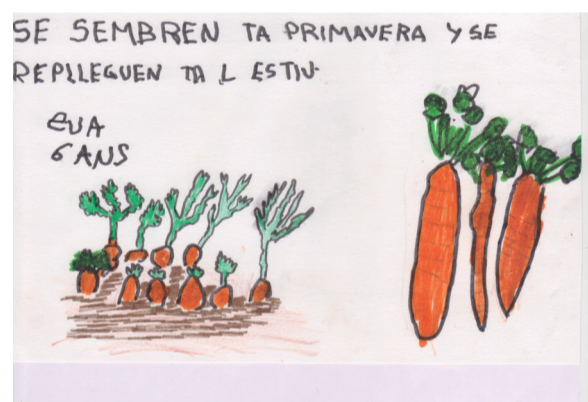 SE SEMBREN TA PRIMAVERA Y SE
REPLLEGUEN TA L ESTIU.
EVA
6 ANS